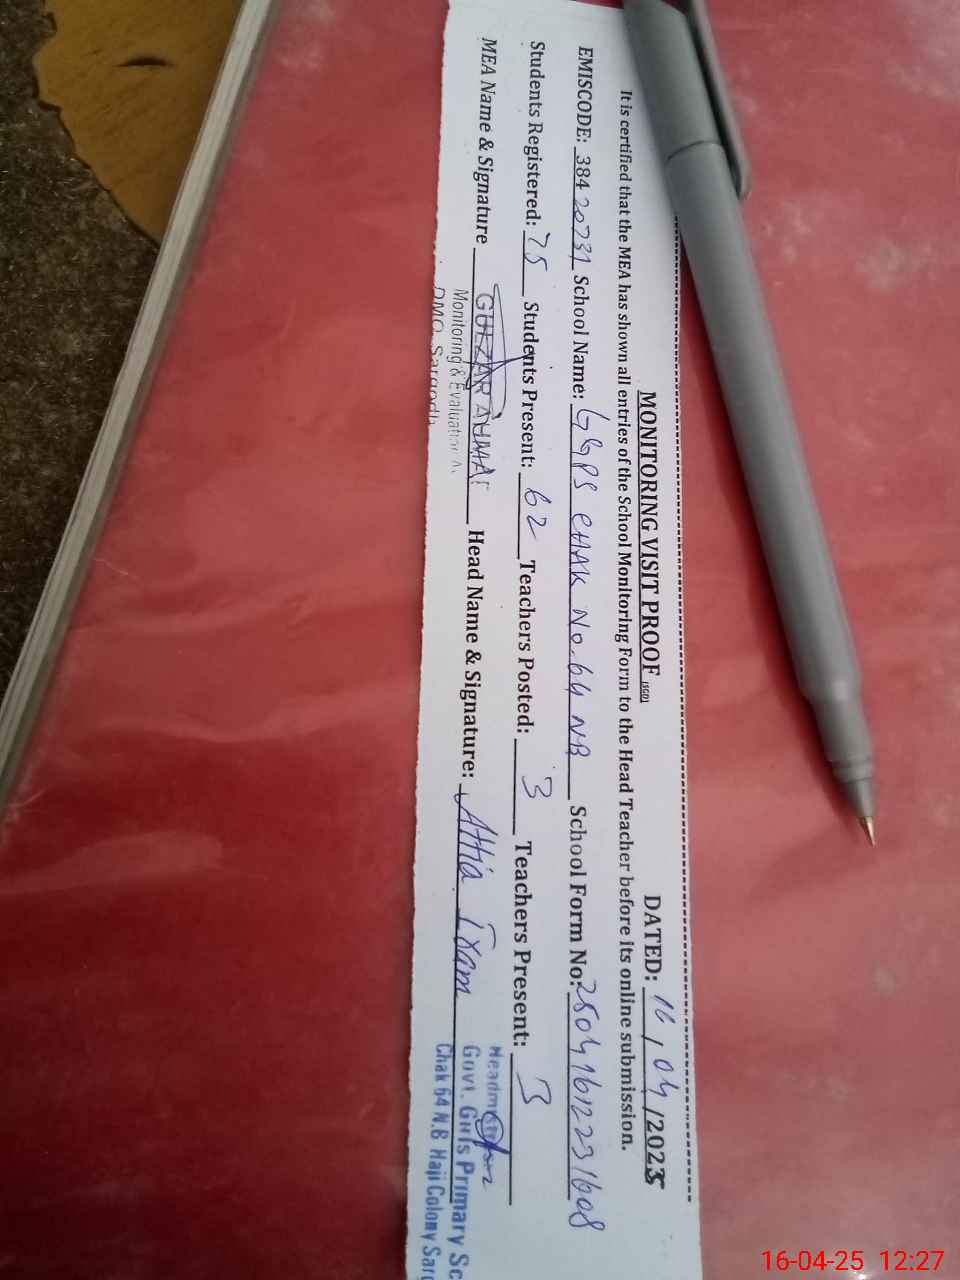 MONITORING VISIT PROOF (SGD) DATED: 16/04/2025
It is certified that the MEA has shown all entries of the School Monitoring Form to the Head Teacher before its online submission.
EMISCODE: 38420731 School Name: GGPS CHAK No.64 NB School Form No: 25041612231608
Students Registered: 75 Students Present: 62 Teachers Posted: 3 Teachers Present: 3
MEA Name & Signature GULZAR AHMA Head Name & Signature: Attia Ikram
Monitoring & Evaluation A
DMO, Sargodh
Govt. Girls Primary Sc
Chak 64 N.B Haji Colony Sarg
16-04-25 12:27